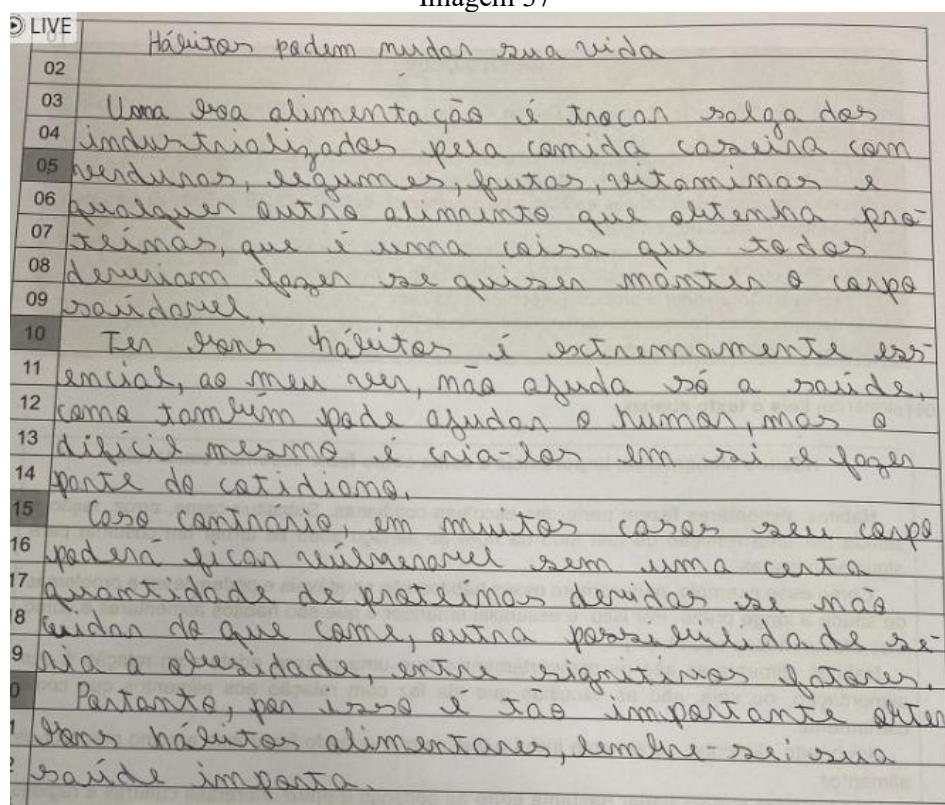 Imagem 37
LIVE
Hábitos podem mudar sua vida
02
03 Uma boa alimentação é trocar salga dos
04 industrializados pela comida caseira com
05 verduras, legumes, frutas, vitaminas e
06 qualquer outro alimento que obtenha pro-
07 teínas, que é uma coisa que todos
08 deveriam fazer se quiser manter o corpo
09 saúdavel.
10 Ter bons hábitos é extremamente ess-
11 encial, ao meu ver, não ajuda só a saúde,
12 como também pode ajudar o humor, mas o
13 difícil mesmo é cria-los em si e fazer
14 parte do cotidiano.
15 Caso contrário, em muitos casos seu corpo
16 poderá ficar vúlneravel sem uma certa
17 quantidade de proteínas devidas se não
8 cuidar do que come, outra possebilidade se-
9 ria a obesidade, entre signitivos fatores.
0 Portanto, por isso é tão importante obter
1 bons hábitos alimentares, lembre se, sua
2 saúde importa.